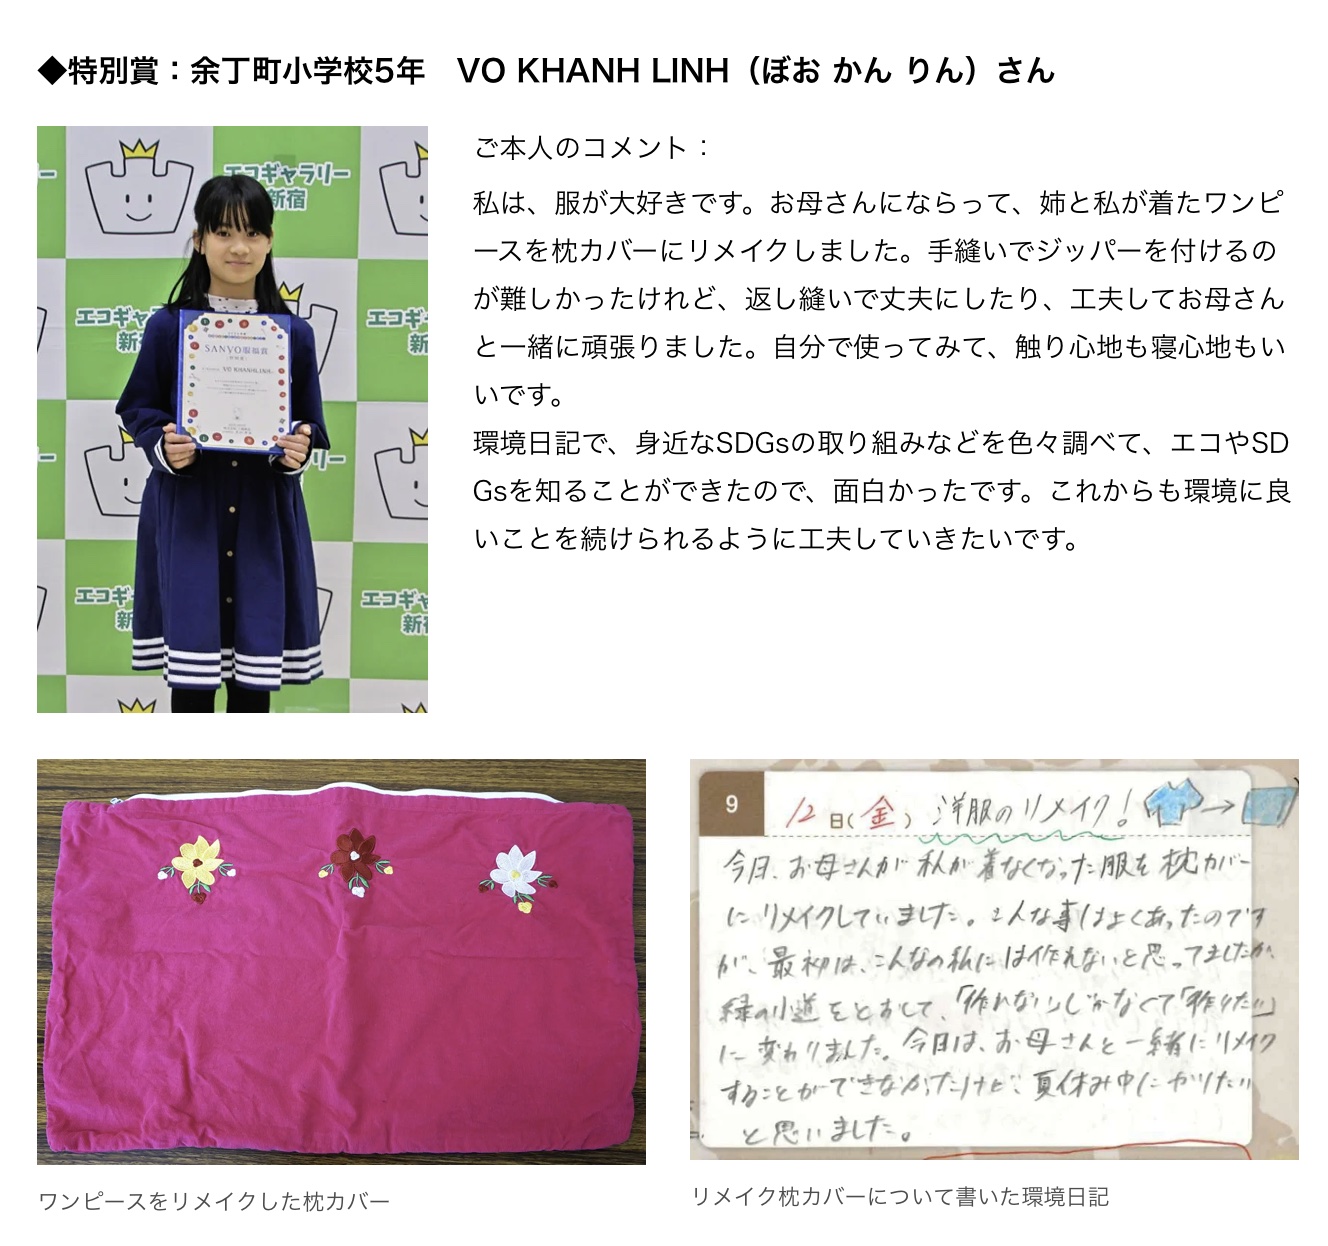 ◆特別賞：余丁町小学校5年　VO KHANH LINH（ぼお かん りん）さん
エコギャラリー
新宿
エコギャ
新
エコギャ
新
ラリー
エコギ
新
エコギャ
新
SANYO服福賞
VO KHANH LINH
ご本人のコメント：
私は、服が大好きです。お母さんにならって、姉と私が着たワンピ
ースを枕カバーにリメイクしました。手縫いでジッパーを付けるの
が難しかったけれど、返し縫いで丈夫にしたり、工夫してお母さん
と一緒に頑張りました。自分で使ってみて、触り心地も寝心地もい
いです。
環境日記で、身近なSDGsの取り組みなどを色々調べて、エコやSD
Gsを知ることができたので、面白かったです。これからも環境に良
いことを続けられるように工夫していきたいです。
ワンピースをリメイクした枕カバー
9
12日(金) 洋服のリメイク!
今日、お母さんが私が着なくなった服を枕カバー
にリメイクしていました。こんな事はよくあったのです
が、最初は、こんなの私には作れないと思ってましたが、
緑の小道をとおして、「作れない」じゃなくて「作りたい」
に変わりました。今日は、お母さんと一緒にリメイク
することができなかったけど、夏休み中にやりたい
と思いました。
リメイク枕カバーについて書いた環境日記